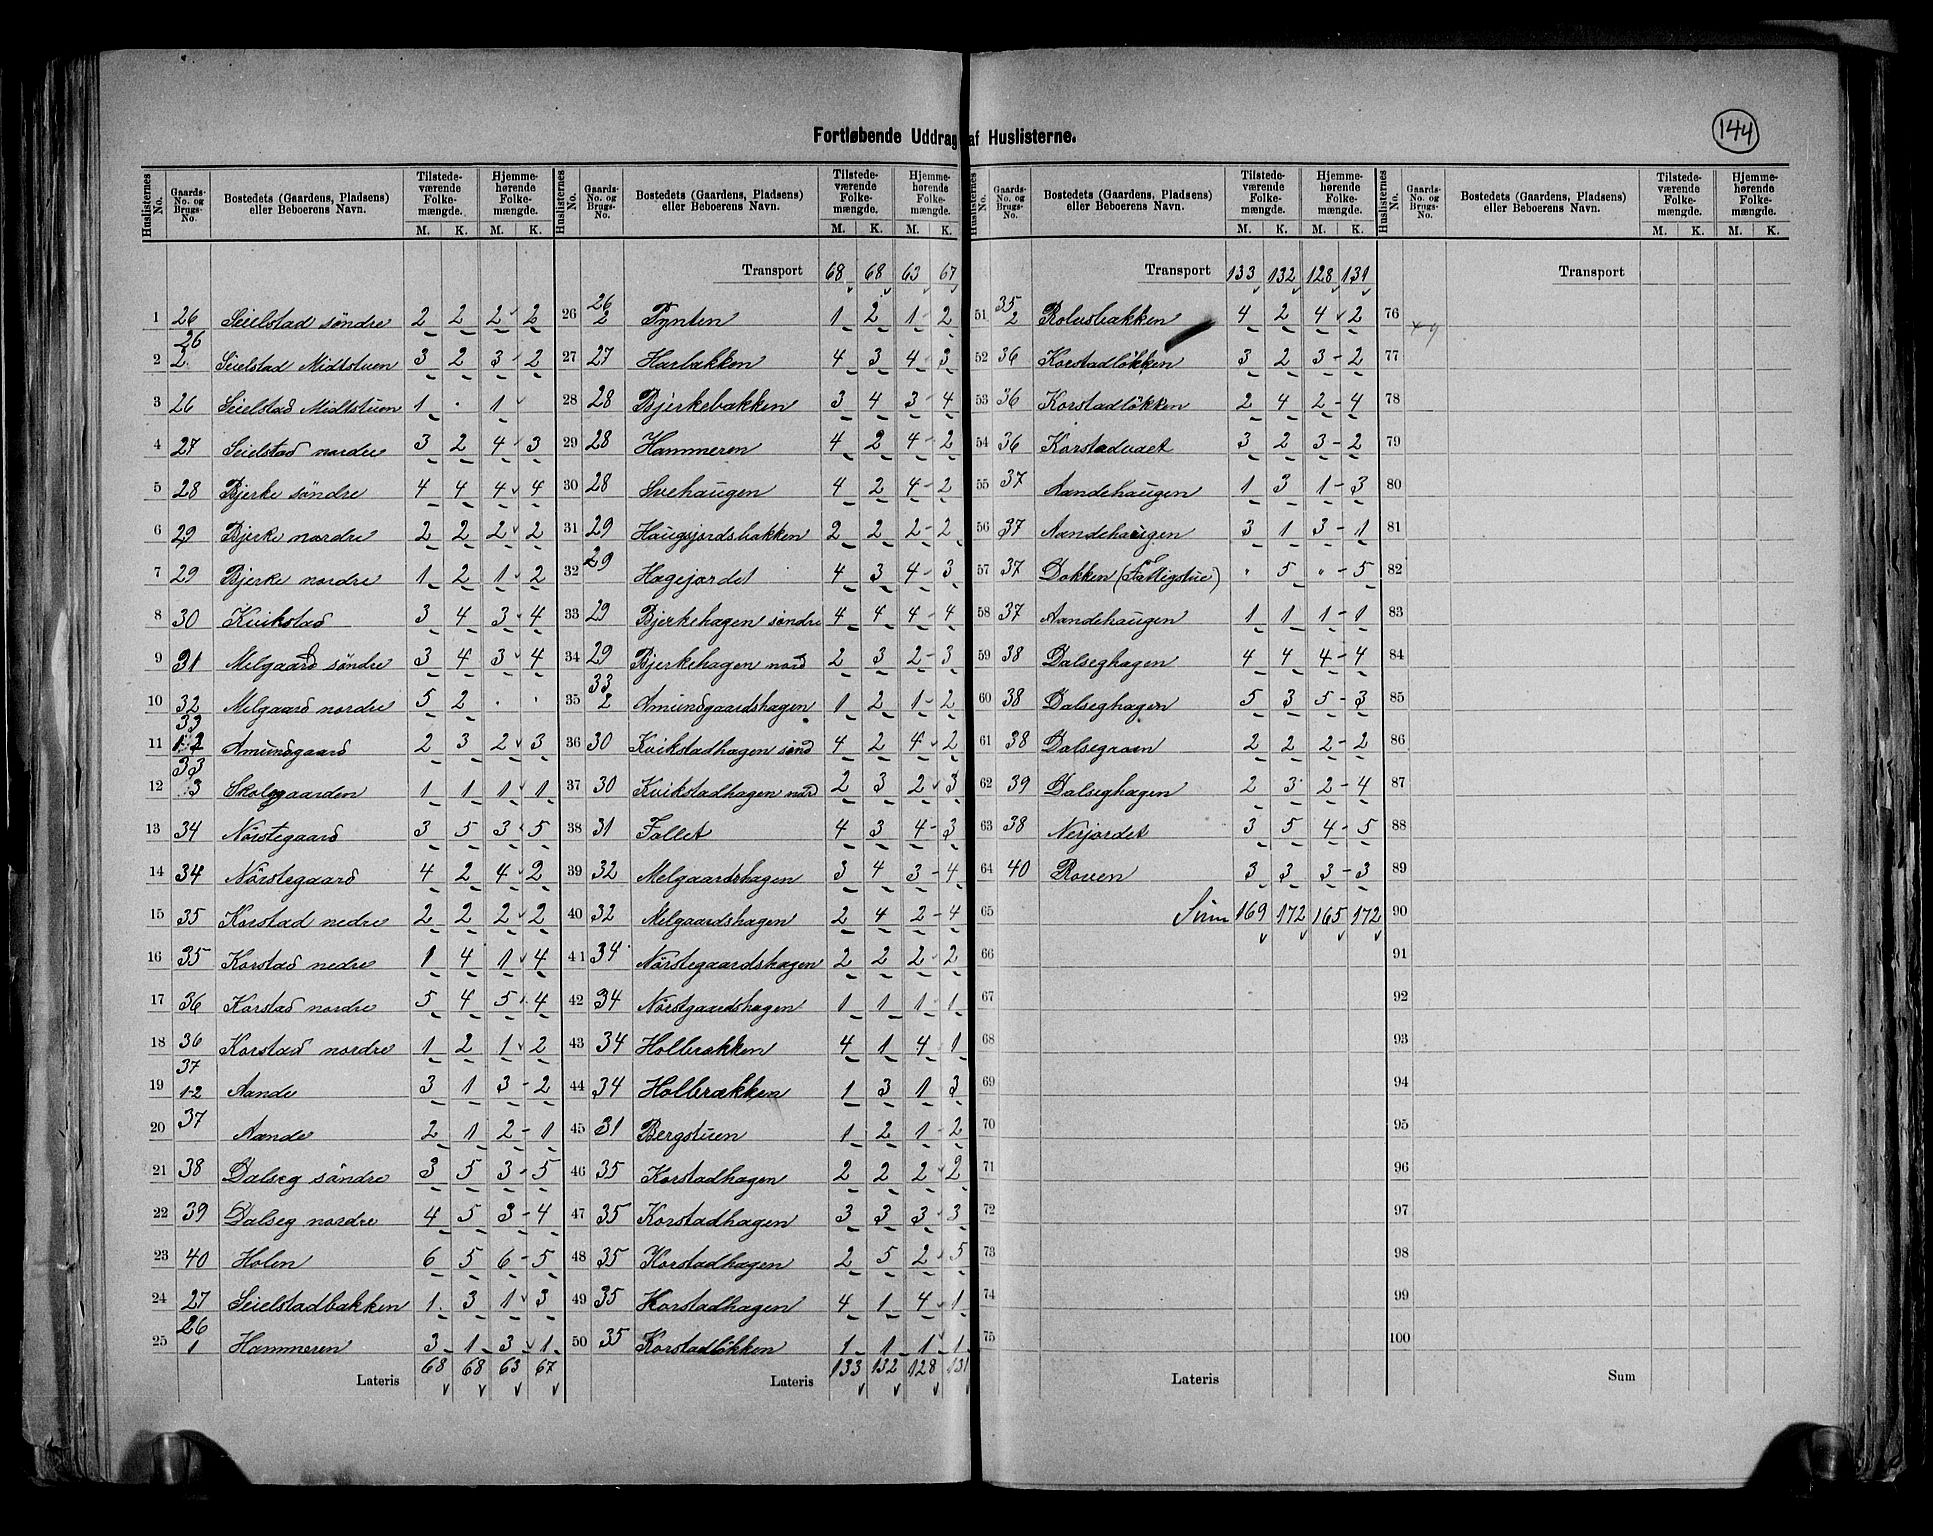 144
Fortløbende Uddrag af Huslisterne.
Huslisternes No. | Gaards-No. og Brugs-No. | Bostedets (Gaardens, Pladsens) eller Beboerens Navn. | Tilstedeværende Folkemængde. M. K. | Hjemmehørende Folkemængde. M. K.
1 26 Seielstad søndre 2 2 2 2
2 26 2 Seielstad Midtstuen 3 2 3 2
3 26 Seielstad Midtstuen 1 . 1
4 27 Seielstad nordre 3 2 4 3
5 28 Bjerke søndre 4 4 4 4
6 29 Bjerke nordre 2 2 2 2
7 29 Bjerke nordre 1 2 1 2
8 30 Kvikstad 3 4 3 4
9 31 Melgaard søndre 3 4 3 4
10 32 Melgaard nordre 5 2 . .
11 33 1-2 Amundgaard 2 3 2 3
12 33 3 Skolegaarden 1 1 1 1
13 34 Nörstegaard 3 5 3 5
14 34 Nörstegaard 4 2 4 2
15 35 Korstad nedre 2 2 2 2
16 35 Korstad nedre 1 4 1 4
17 36 Korstad nordre 5 4 5 4
18 36 Korstad nordre 1 2 1 2
19 37 1-2 Aande 3 1 3 2
20 37 Aande 2 1 2 1
21 38 Dalseg söndre 3 5 3 5
22 39 Dalseg nordre 4 5 3 4
23 40 Holen 6 5 6 5
24 27 Seielstadbakken 1 3 1 3
25 26 1 Hammeren 3 1 3 1
Lateris 68 68 63 67
Transport 68 68 63 67
26 26 2 Pynten 1 2 1 2
27 27 Harbakken 4 3 4 3
28 28 Bjerkebakken 3 4 3 4
29 28 Hammeren 4 2 4 2
30 28 Svehaugen 4 2 4 2
31 29 Haugsjordsbakken 2 2 2 2
32 29 Hagejordet 4 3 4 3
33 29 Bjerkehagen søndre 4 4 4 4
34 29 Bjerkehagen nord 2 3 2 3
35 33 2 Amundgaardshagen 1 2 1 2
36 30 Kvikstadhagen sönd 4 2 4 2
37 30 Kvikstadhagen nord 2 3 2 3
38 31 Fallet 4 3 4 3
39 32 Melgaardshagen 3 4 3 4
40 32 Melgaardshagen 2 4 2 4
41 34 Nörstegaardshagen 2 2 2 2
42 34 Nörstgaardshagen 1 1 1 1
43 34 Holbrækken 4 1 4 1
44 34 Holbrækken 1 3 1 3
45 31 Bergstuen 1 2 1 2
46 35 Korstadhagen 2 2 2 2
47 35 Korstadhagen 3 3 3 3
48 35 Korstadhagen 2 5 2 5
49 35 Korstadhagen 4 1 4 1
50 35 Korstadlökken 1 1 1 1
Lateris 133 132 128 131
Huslisternes No. | Gaards-No. og Brugs-No. | Bostedets (Gaardens, Pladsens) eller Beboerens Navn. | Tilstedeværende Folkemængde. M. K. | Hjemmehørende Folkemængde. M. K.
Transport 133 132 128 131
51 35 2 Rolusbakken 4 2 4 2
52 36 Korstadlökken 3 2 3 2
53 36 Korstadlökken 2 4 2 4
54 36 3 2 3 2
55 37 Aandehaugen 1 3 1 3
56 37 Aandehaugen 3 1 3 1
57 37 Dokken (Fattigstue) " 5 " 5
58 37 Aandehaugen 1 1 1 1
59 38 Dalseghagen 4 4 4 4
60 38 Dalseghagen 5 3 5 3
61 38 Dalsegroen 2 2 2 2
62 39 Dalseghagen 2 3 2 4
63 38 Nerjordet 3 5 4 5
64 40 Roven 3 3 3 3
65 Sum 169 172 165 172
66
67
68
69
70
71
72
73
74
75
Lateris
Transport
76
77
78
79
80
81
82
83
84
85
86
87
88
89
90
91
92
93
94
95
96
97
98
99
100
Sum